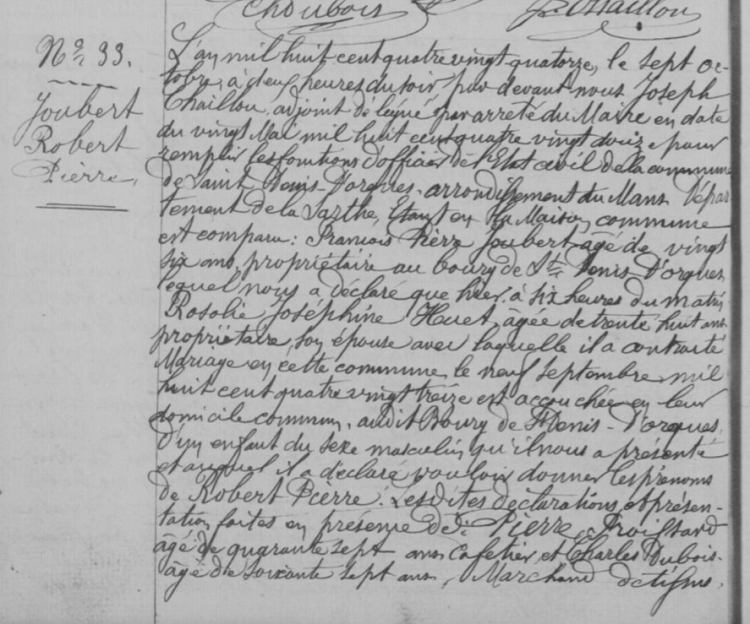 Choubois J. Chaillou
N° 33.
Joubert
Robert
Pierre,
L'an mil huit cent quatre vingt quatorze, le sept oc-
tobre, à deux heures du soir, par devant nous Joseph
Chaillou, adjoint délégué par arrêté du Maire en date
du vingt Mai mil huit cent quatre vingt douze pour
remplir les fonctions d'officier de l'Etat civil de la commune
de Saint Denis d'orques, arrondissement du Mans Dépar
tement de la Sarthe, Etant en la Maison commune
est comparu : François Pierre Joubert âgé de vingt
six ans, propriétaire au bourg de St Denis D'orques
lequel nous a déclaré que hier, à six heures du matin
Rosalie Joséphine Huet, âgée de trente huit ans
propriétaire, son épouse avec laquelle il a contracté
Mariage en cette commune, le neuf septembre mil
huit cent quatre vingt treize est accouchée en leur
domicile commun, audit Bourg de St Denis-D'orques
D'un enfant du sexe masculin, qu'il nous a présenté
et auquel il a déclaré vouloir donner les prénoms
de Robert Pierre. Les dites déclarations et présen-
tation faites en présence de Pierre
âgé de quarante sept ans Cafetier, et Charles Dubois
âgé de soixante sept ans, Marchand